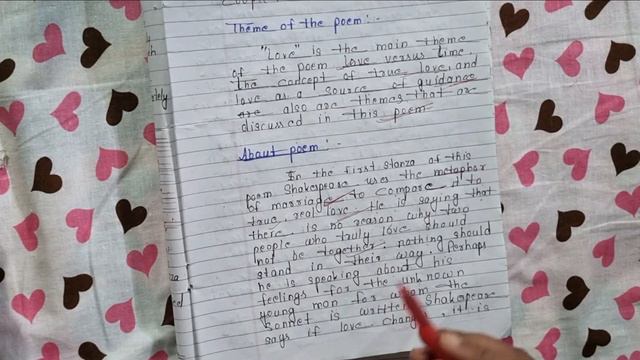 Theme of the poem :-
"Love" is the main theme
of the poem love versus time.
The concept of true love, and
love as a source of guidance
are also are themes that are
discussed in this poem
About poem :-
In the first stanza of this
poem Shakespeare uses the metaphor
of marriage to compare it to
true, real love. He is saying that
there is no reason why two
people who truly love should
not be together, nothing should
stand in their way. Perhaps
he is speaking about his
feelings for the unknown
young man for whom the
sonnet is written. Shakespeare
says if love changes, it is